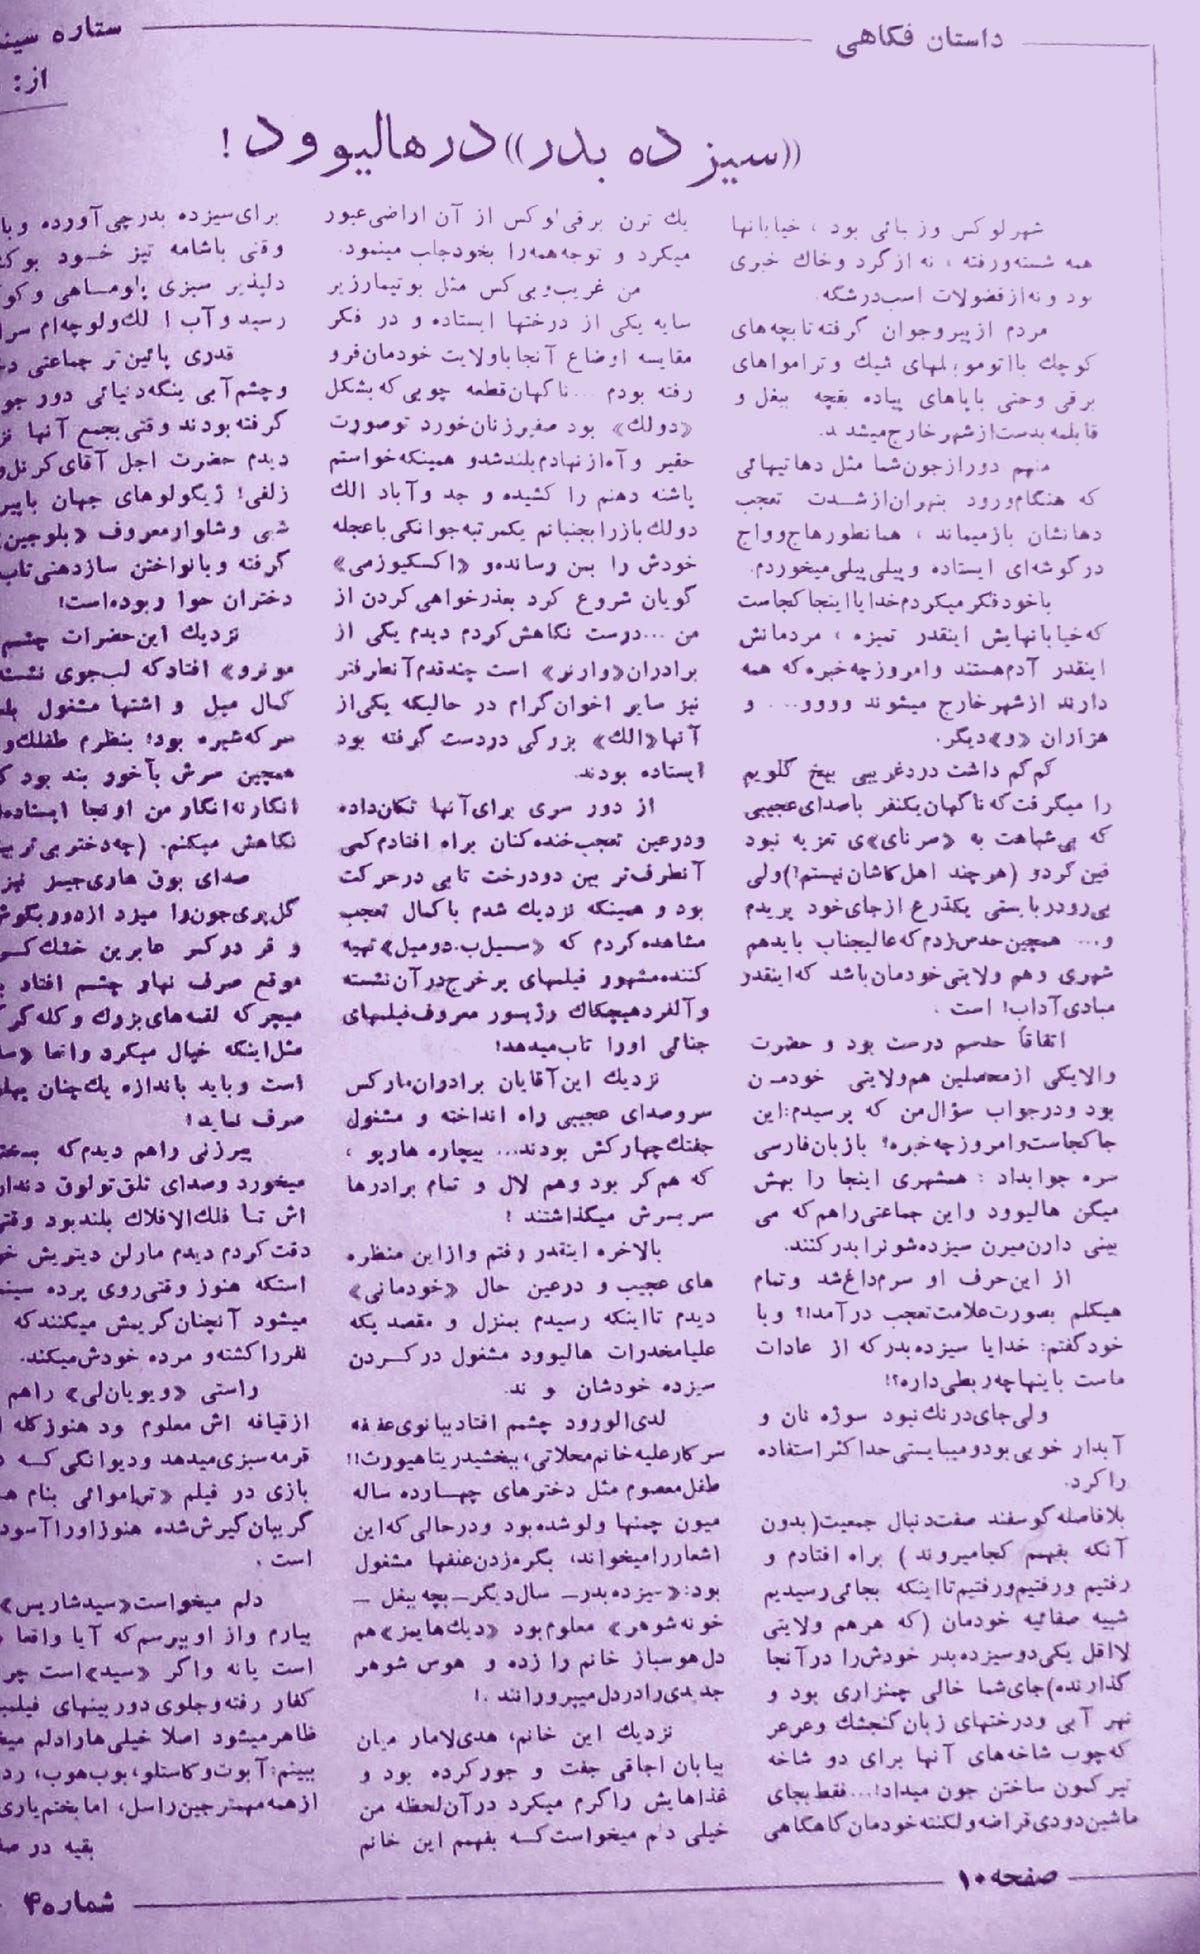 داستان فکاهی
ستاره سینما
از:
((سیزده بدر)) در هالیوود!
شهر لوکس وزیبائی بود ، خیابانها
همه شسته ورفته ، نه ازگرد وخاك خبری
بود ونه از فضولات اسب درشگه.
مردم از پیروجوان گرفته تا بچه‌های
کوچك بااتومو بیلهای شیك وتراموا های
برقی وحتی با پاهای پیاده بقچه ببغل و
قابلمه بدست ازشهر خارج میشدند.
منهم دورازجون شما مثل دهاتیهائی
که هنگام ورود بتهران ازشدت تعجب
دهانشان بازمیماند ، همانطور هاج و واج
در گوشه‌ای ایستاده وپیلی پیلی میخوردم.
باخود فکر میکردم خدایا اینجا کجاست
که خیابانهایش اینقدر تمیزه ، مردمانش
اینقدر آدم هستند وامروز چه خبره که همه
دارند ازشهر خارج میشوند وووو... و
هزاران «و» دیگر.
کم کم داشت درد غریبی بیخ گلویم
را میگرفت که ناگهان یکنفر باصدای عجیبی
که بی شباهت به «سرنای»ی تعزیه نبود
فین کرد و (هرچند اهل کاشان نیستم!) ولی
بی رودربایستی یکذرع ازجای خود پریدم
و... همچین حدس زدم که عالیجناب بایدهم
شهری وهم ولایتی خودمان باشد که اینقدر
مبادی آداب! است .
اتفاقاً حدسم درست بود و حضرت
والا یکی از محصلین هم ولایتی خودمـن
بود ودرجواب سؤال من که پرسیدم: این
جا کجاست وامروز چه خبره؟ بازبان فارسی
سره جوابداد : همشهری اینجا را بهش
میگن هالیوود واین جماعتی راهم که می
بینی دارن میرن سیزده شونرا بدر کنند.
از این حرف او سرم داغ شد وتمام
هیکلم بصورت علامت تعجب درآمد!؟ وبا
خود گفتم: خدایا سیزده بدر که از عادات
ماست با ینها چه ربطی داره؟!
ولی جای درنك نبود سوژه نان و
آبدار خوبی بود ومیبایستی حداکثر استفاده
را کرد.
بلافاصله گوسفند صفت دنبال جمعیت (بدون
آنکه بفهمم کجا میروند ) براه افتادم و
رفتیم ورفتیم ورفتیم تا اینکه بجائی رسیدیم
شبیه صفائیه خودمان (که هرهم ولایتی
لااقل یکی دو سیزده بدر خودش را در آنجا
گذارنده) جای شما خالی چمنزاری بود و
نهر آبی ودرختهای زبان گنجشك وعرعر
که چوب شاخه‌های آنها برای دو شاخه
تیر کمون ساختن جون میداد!... فقط بجای
ماشین دودی قراضه ولکنته خودمان گاهگاهی
یك ترن برقی لوکس از آن اراضی عبور
میکرد و توجه همه را بخود جلب مینمود.
من غریب وبی کس مثل بوتیمار زیر
سایه یکی از درختها ایستاده و در فکر
مقایسه اوضاع آنجا باولایت خودمان فرو
رفته بودم ... ناگهان قطعه چوبی که بشکل
«دولك» بود صفیرزنان خورد توصورت
حقیر و آه از نهادم بلند شدو همینکه خواستم
پاشنه دهنم را کشیده و جد وآباد الك
دولك باز را بجنبانم یکمرتبه جوانکی باعجله
خودش را بمن رساندهو «اکسکیوزمی»
گویان شروع کرد بعذرخواهی کردن از
من ... درست نگاهش کردم دیدم یکی از
برادران «وارنر» است چند قدم آنطرفتر
نیز سایر اخوان گرام در حالیکه یکی از
آنها «الك» بزرگی دردست گرفته بود
ایستاده بودند.
از دور سری برای آنها تکان داده
ودرعین تعجب خنده کنان براه افتادم کمی
آنطرف تر بین دودرخت تابی درحرکت
بود و همینکه نزدیك شدم با کمال تعجب
مشاهده کردم که «سسیل ب. دومیل» تهیه
کننده مشهور فیلمهای پرخرج درآن نشسته
و آلفرد هیچکاك رژیسور معروف فیلمهای
جنائی اورا تاب میدهد!
نزدیك این آقایان برادران مارکس
سروصدای عجیبی راه انداخته و مشغول
جفتك چهارکش بودند... بیچاره هارپو ،
که هم کر بود وهم لال و تمام برادرها
سربسرش میگذاشتند !
بالاخره اینقدر رفتم وازاین منظره
های عجیب و درعین حال «خودمانی»
دیدم تا اینکه رسیدم بمنزل و مقصدیکه
علیا مخدرات هالیوود مشغول درکردن
سیزده خودشان وند.
لدی الورود چشمم افتاد ببانوی عفیفه
سرکارعلیه خانم محلاتی، ببخشید ریتا هیورث!!
طفل معصوم مثل دخترهای چهارده ساله
میون چمنها ولو شده بود ودرحالی که این
اشعار را میخواند، بگره زدن علفها مشغول
بود: «سیزده بدر ـ سال دیگر ـ بچه ببغل ـ
خونه شوهر» معلوم بود «دیك هایمز» هم
دل هوسباز خانم را زده و هوس شوهر
جدیدی را دردل میپروراند .!
نزدیك این خانم، هدی لامار میان
بیابان اجاقی جفت و جور کرده بود و
غذاهایش را گرم میکرد در آن لحظه من
خیلی دلم میخواست که بفهمم این خانم
برای سیزده بدر چی آورده وبا
وقتی باشامه تیز خود بو
دلپذیر سبزی پلو ماهی و
رسید وآب از لك ولوچه‌ام
قدری پائین تر جماعتی
وچشم آبی ینگه دنیائی دور
گرفته بودند وقتی بجمع آنها
دیدم حضرت اجل آقای کرنل
زلفی! ژیگولوهای جهان با
شبی وشلوار معروف «بلوجین
گرفته وبا نواختن سازدهنی
دختران حوا ربوده است!
نزدیك این حضرات چشمم
مونرو» افتاد که لب جوی نشسته
کمال میل و اشتها مشغول
سرکه شیره بود! بنظرم طفلك
همچین سرش بآخور بند بود
انگار نه انگار من اونجا ایستاده
نگاهش میکنم. (چه دختر بی تربیتی
صدای بوق هاری جیمز نیز
گل پری جون را میزد از دور بگوش
و قر در کمر عابرین خشك
موقع صرف نهار چشمم افتاد
میچر که لقمه‌های بزرك وکله گر
مثل اینکه خیال میکرد واقعا
است وباید باندازه یك چنان
صرف نماید!
پیرزنی راهم دیدم که
میخورد وصدای تلق تولوق
اش تـا فلك الافلاك بلند بود
دقت کردم دیدم مارلن دیتریش
استکه هنوز وقتی روی پرده
میشود آنچنان گریمش میکنند که
نفر را کشته و مرده خودش میکند.
راستی «ویویان لی» راهم
از قیافه اش معلوم بود هنوز کله
قرمه سبزی میدهد ودیوانگی که
بازی در فیلم «تراموائی بنام
گریبان گیرش شده هنوز اورا
است .
دلم میخواست «سیدشاریس»
بیارم واز او بپرسم که آیا واقعا
است یا نه واگر «سید» است
کفار رفته وجلوی دوربینهای
ظاهر میشود اصلا خیلی هارادلم
ببینم: آبوت وکاستلو، بوب هوپ،
ازهمه مهمتر جین راسل، اما بختم یاری
بقیه در
صفحه ۱۰
شماره ۴